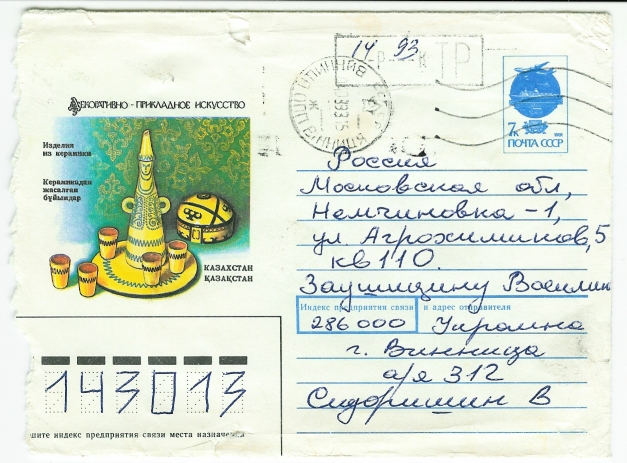 14 93
Р К ТР
7к 1991
ПОЧТА СССР
ДЕКОРАТИВНО - ПРИКЛАДНОЕ ИСКУССТВО
Изделия
из керамики
Керамикадан
жасалған
бұйымдар
КАЗАХСТАН
ҚАЗАҚСТАН
Россия
Московская обл,
Немчиновка-1,
ул. Агрохимиков, 5
кв 110.
Заушицину Василию
Индекс предприятия связи и адрес отправителя
286000 Украина
г. Винница
а/я 312
Сидоришин В
143013
шите индекс предприятия связи места назначения